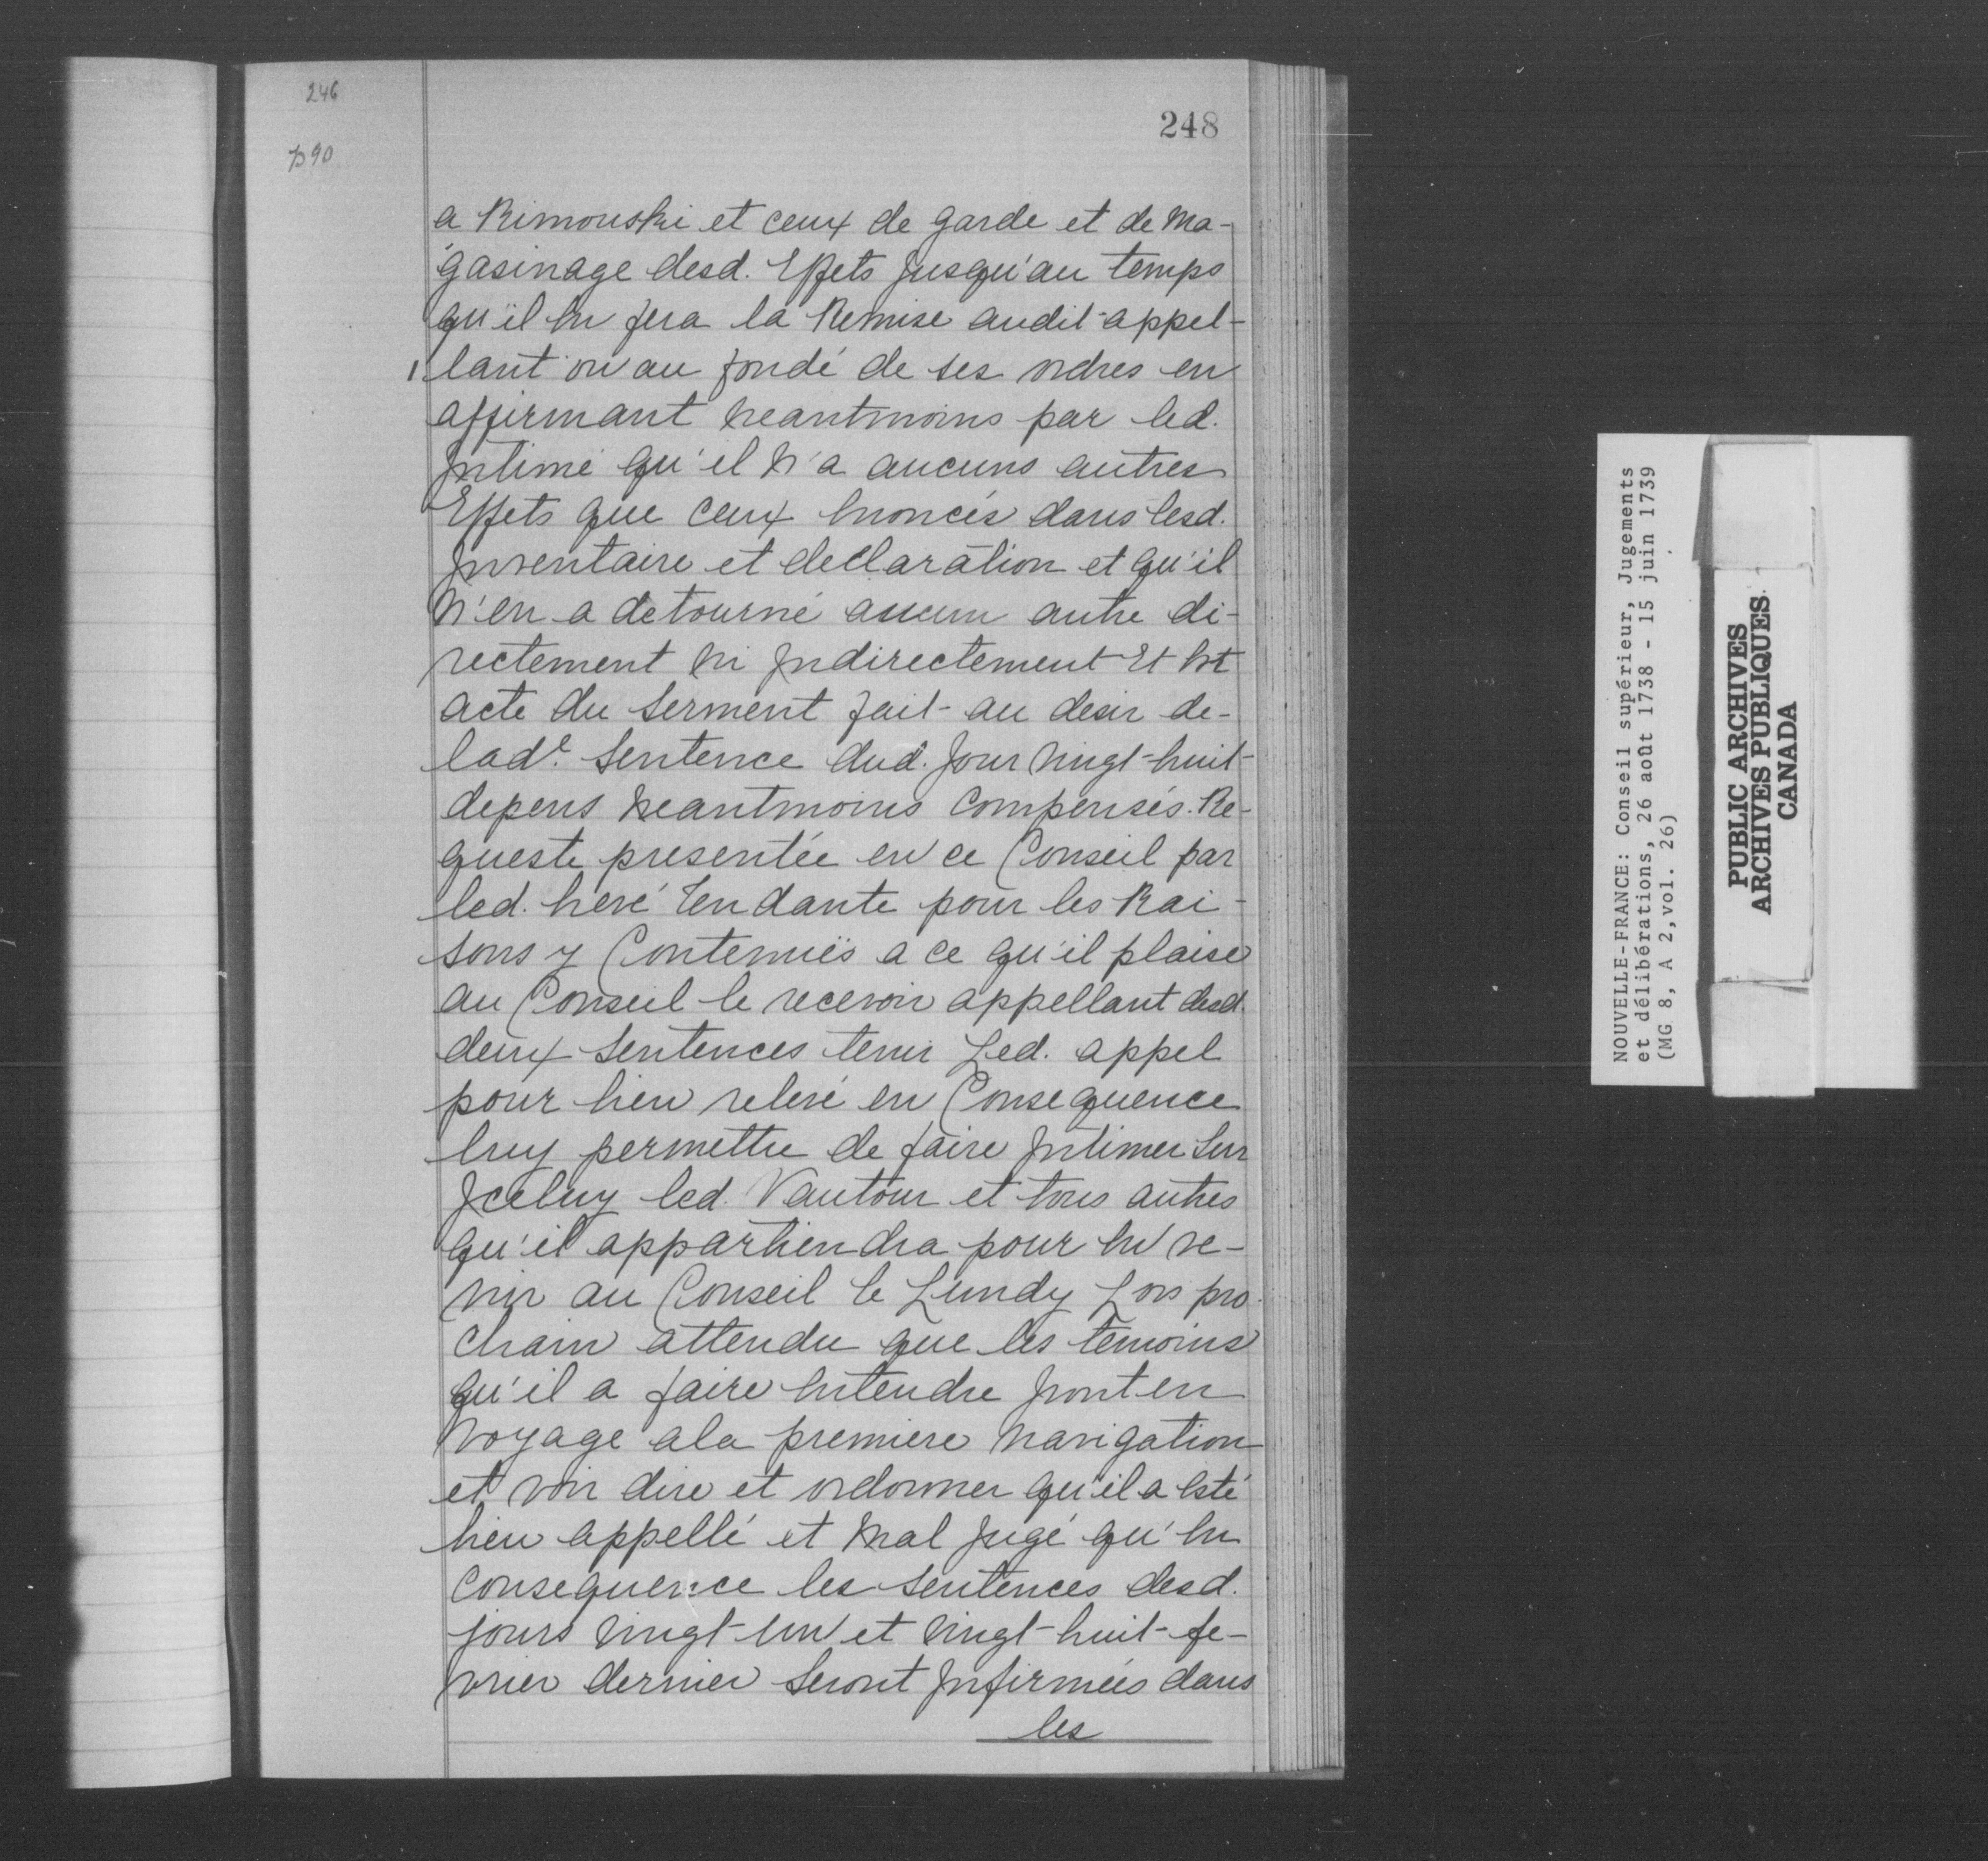 246
p 90
248
a Rimouski et ceux de garde et de ma-
gasinage desd. Effets jusqu'au temps
qu'il en fera la Remise audit appel-
lant ou au fondé de ses ordres en
affirmant neantmoins par led.
Intimé qu'il n'a aucuns autres
Effets que ceux Enoncés dans lesd.
Inventaire et declaration et qu'il
n'en a detourné aucun autre di-
rectement ni Indirectement Et Est
acte du serment fait au desir de-
lade. sentence dud. jour vingt-huit-
depens neantmoins compensés. Re-
queste presentée en ce Conseil par
led. hevé Tendante pour les Rai-
sons y Contenuës a ce qu'il plaise
au Conseil le recevoir appellant desd.
deux sentences tenir Led. appel
pour bien relevé en Consequence
luy permettre de faire Intimer Sur
Iceluy led. Vautour et tous autres
qu'il appartiendra pour En ve-
nir au Conseil le Lundy Lors pro-
chain attendu que les temoins
qu'il a faire Entendre Iront en
voyage ala premiere navigation
et voir dire et ordonner qu'il a Esté
bien appellé et mal jugé qu'En
consequence les sentences desd.
jours vingt-un et vingt-huit-fe-
vrier dernier seront Infirmées dans
les
NOUVELLE-FRANCE: Conseil supérieur, Jugements
et délibérations, 26 août 1738 - 15 juin 1739
(MG 8, A 2,vol. 26)
PUBLIC ARCHIVES
ARCHIVES PUBLIQUES
CANADA